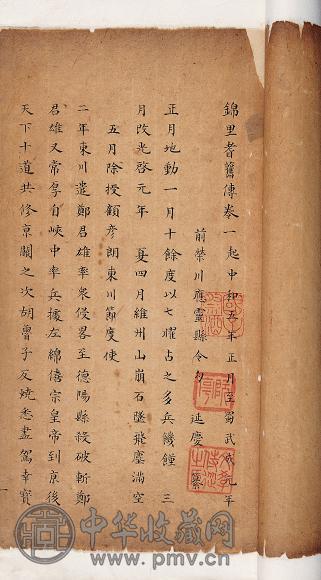 錦里耆舊傳卷一起中和五年正月至蜀武成元年
前榮川應靈縣令勾延慶纂
正月地動一月十餘度以七曜占之多兵饑饉三
月改光啓元年夏四月維州山崩石墜飛塵滿空
五月除授顧彥朗東川節度使
二年東川遣鄭君雄率衆侵畧至德陽縣殺破斬鄭
君雄又常厚自峽中率兵據左綿僖宗皇帝到京後
天下十道共修京闕之次胡魯子反燒悉盡駕幸寶
中华收藏网
www.pmv.cn